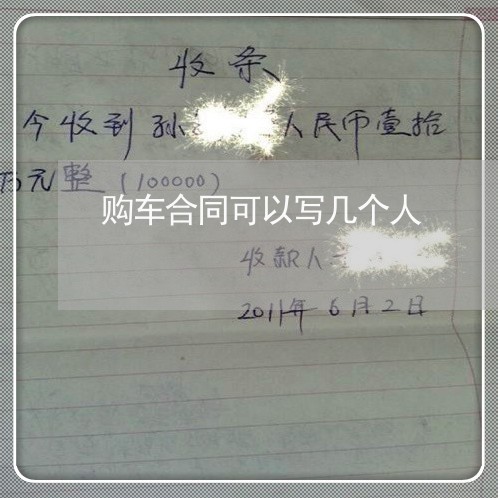 收条
今收到孙 人民币壹拾
万元整（100000）
购车合同可以写几个人
收款人
2011年6月2日